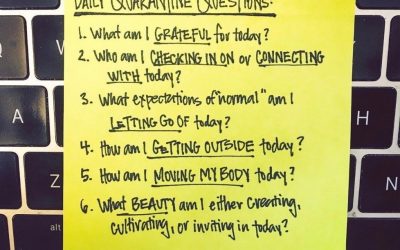 DAILY QUARANTINE QUESTIONS:
1. What am I GRATEFUL for today?
2. Who am I CHECKING IN ON or CONNECTING
WITH today?
3. What expectations of "normal" am I
LETTING GO OF today?
4. How am I GETTING OUTSIDE today?
5. How am I MOVING MY BODY today?
6. What BEAUTY am I either creating,
cultivating, or inviting in today?
A
Z
K
alt